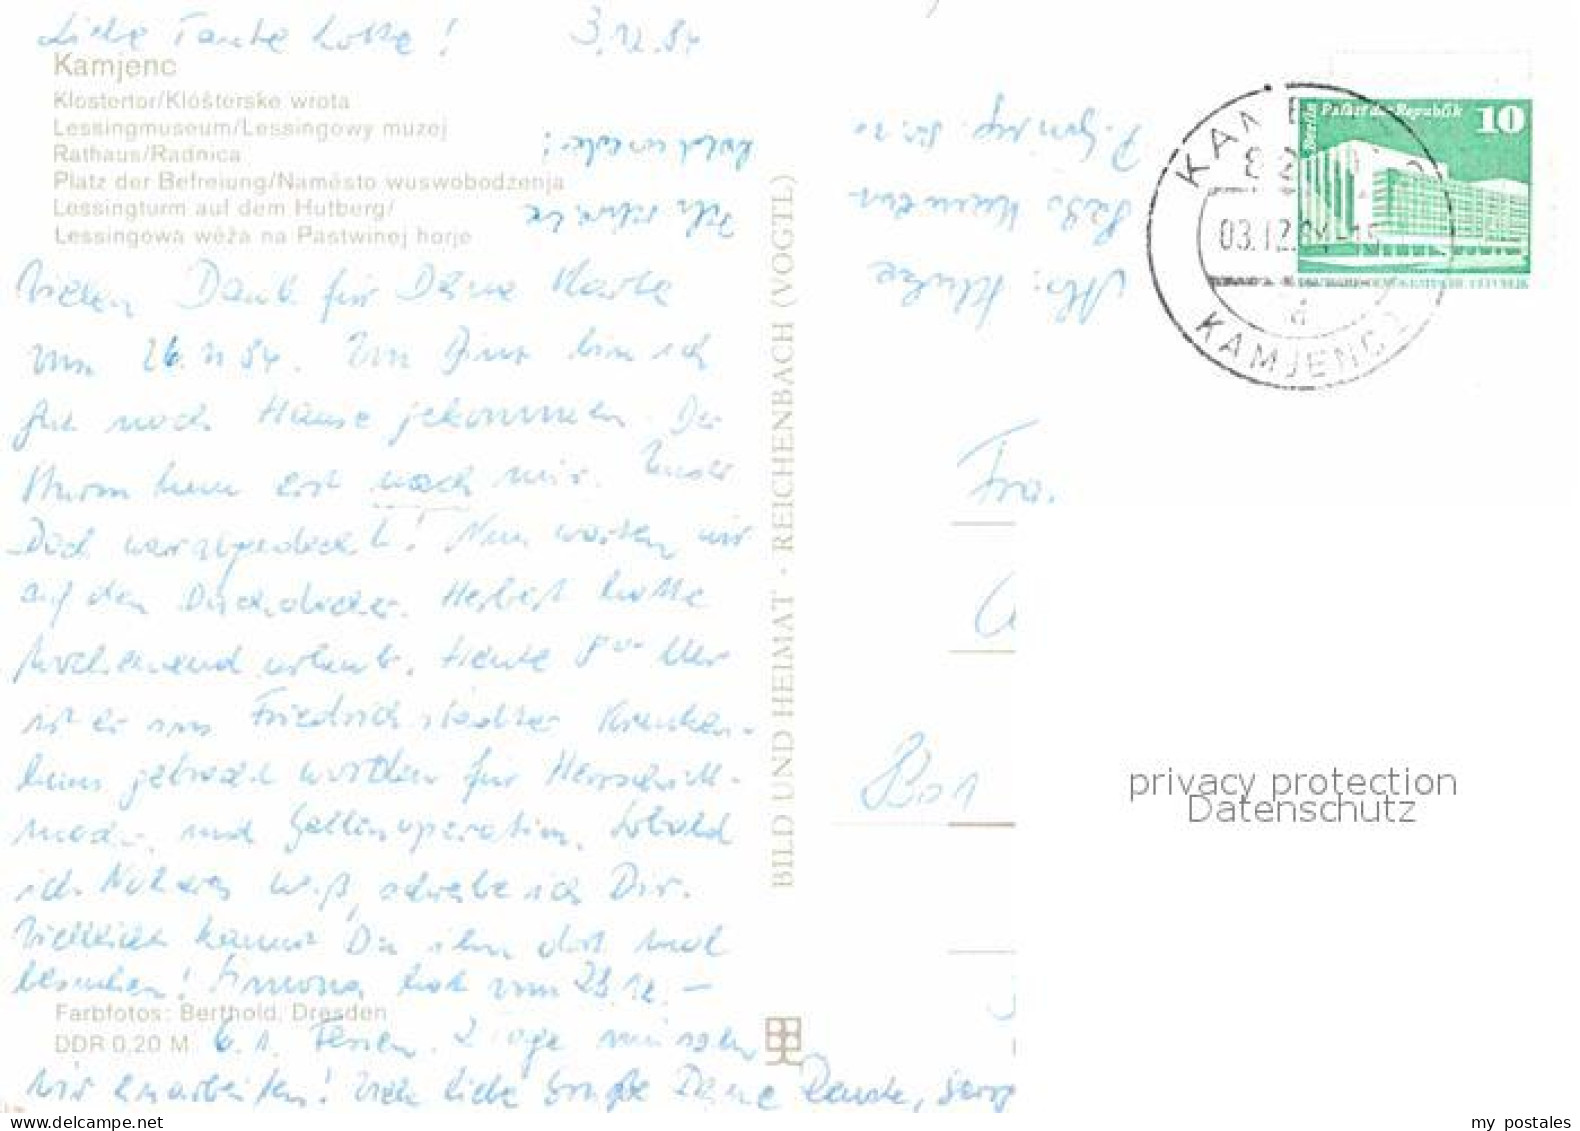 Liebe Tante Lotte! 3.12.84
Kamjenc
Klostertor/Klóšterske wrota
Lessingmuseum/Lessingowy muzej
Rathaus/Radnica
Platz der Befreiung/Naměsto wuswobodźenja
Lessingturm auf dem Hutberg/
Lessingowa wěža na Pastwinej horje
Vielen Dank für Deine Karte
vom 26.11.84. Im bin ich
gut nach Hause gekommen. Der
Sturm kam erst nach mir. Unser
Dach war abgedeckt! Nun warten wir
auf den Dachdecker. Herbert hatte
Wochenendurlaub. Heute 8 Uhr
ist er ins Friedrichstädter Kranken-
haus gebracht worden für Herzschritt-
mach. und Gallenoperation. Sobald
ich Näheres weiß, schreibe ich Dir.
Vielleicht kannst Du ihn dort mal
besuchen! Simona hat vom 23.12. –
6.1. Ferien. 2 Tage müssen
wir einarbeiten! Viele liebe Grüße Deine
Farbfotos: Berthold, Dresden
DDR 0,20 M
Ich schreibe
bald wieder!
BILD UND HEIMAT · REICHENBACH (VOGTL)
8280 Kamenz
Berlin Palast der Republik 10
KAMENZ
03.12.84-15
a
KAMJENC 1
Frau
privacy protection
Datenschutz
my postales